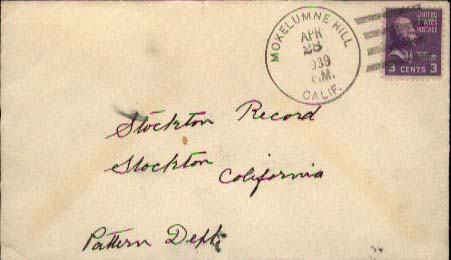 MOKELUMNE HILL
APR
25
1939
M.
CALIF.
UNITED
STATES
POSTAGE
3 CENTS 3
Stockton Record
Stockton
California
Pattern Dept.